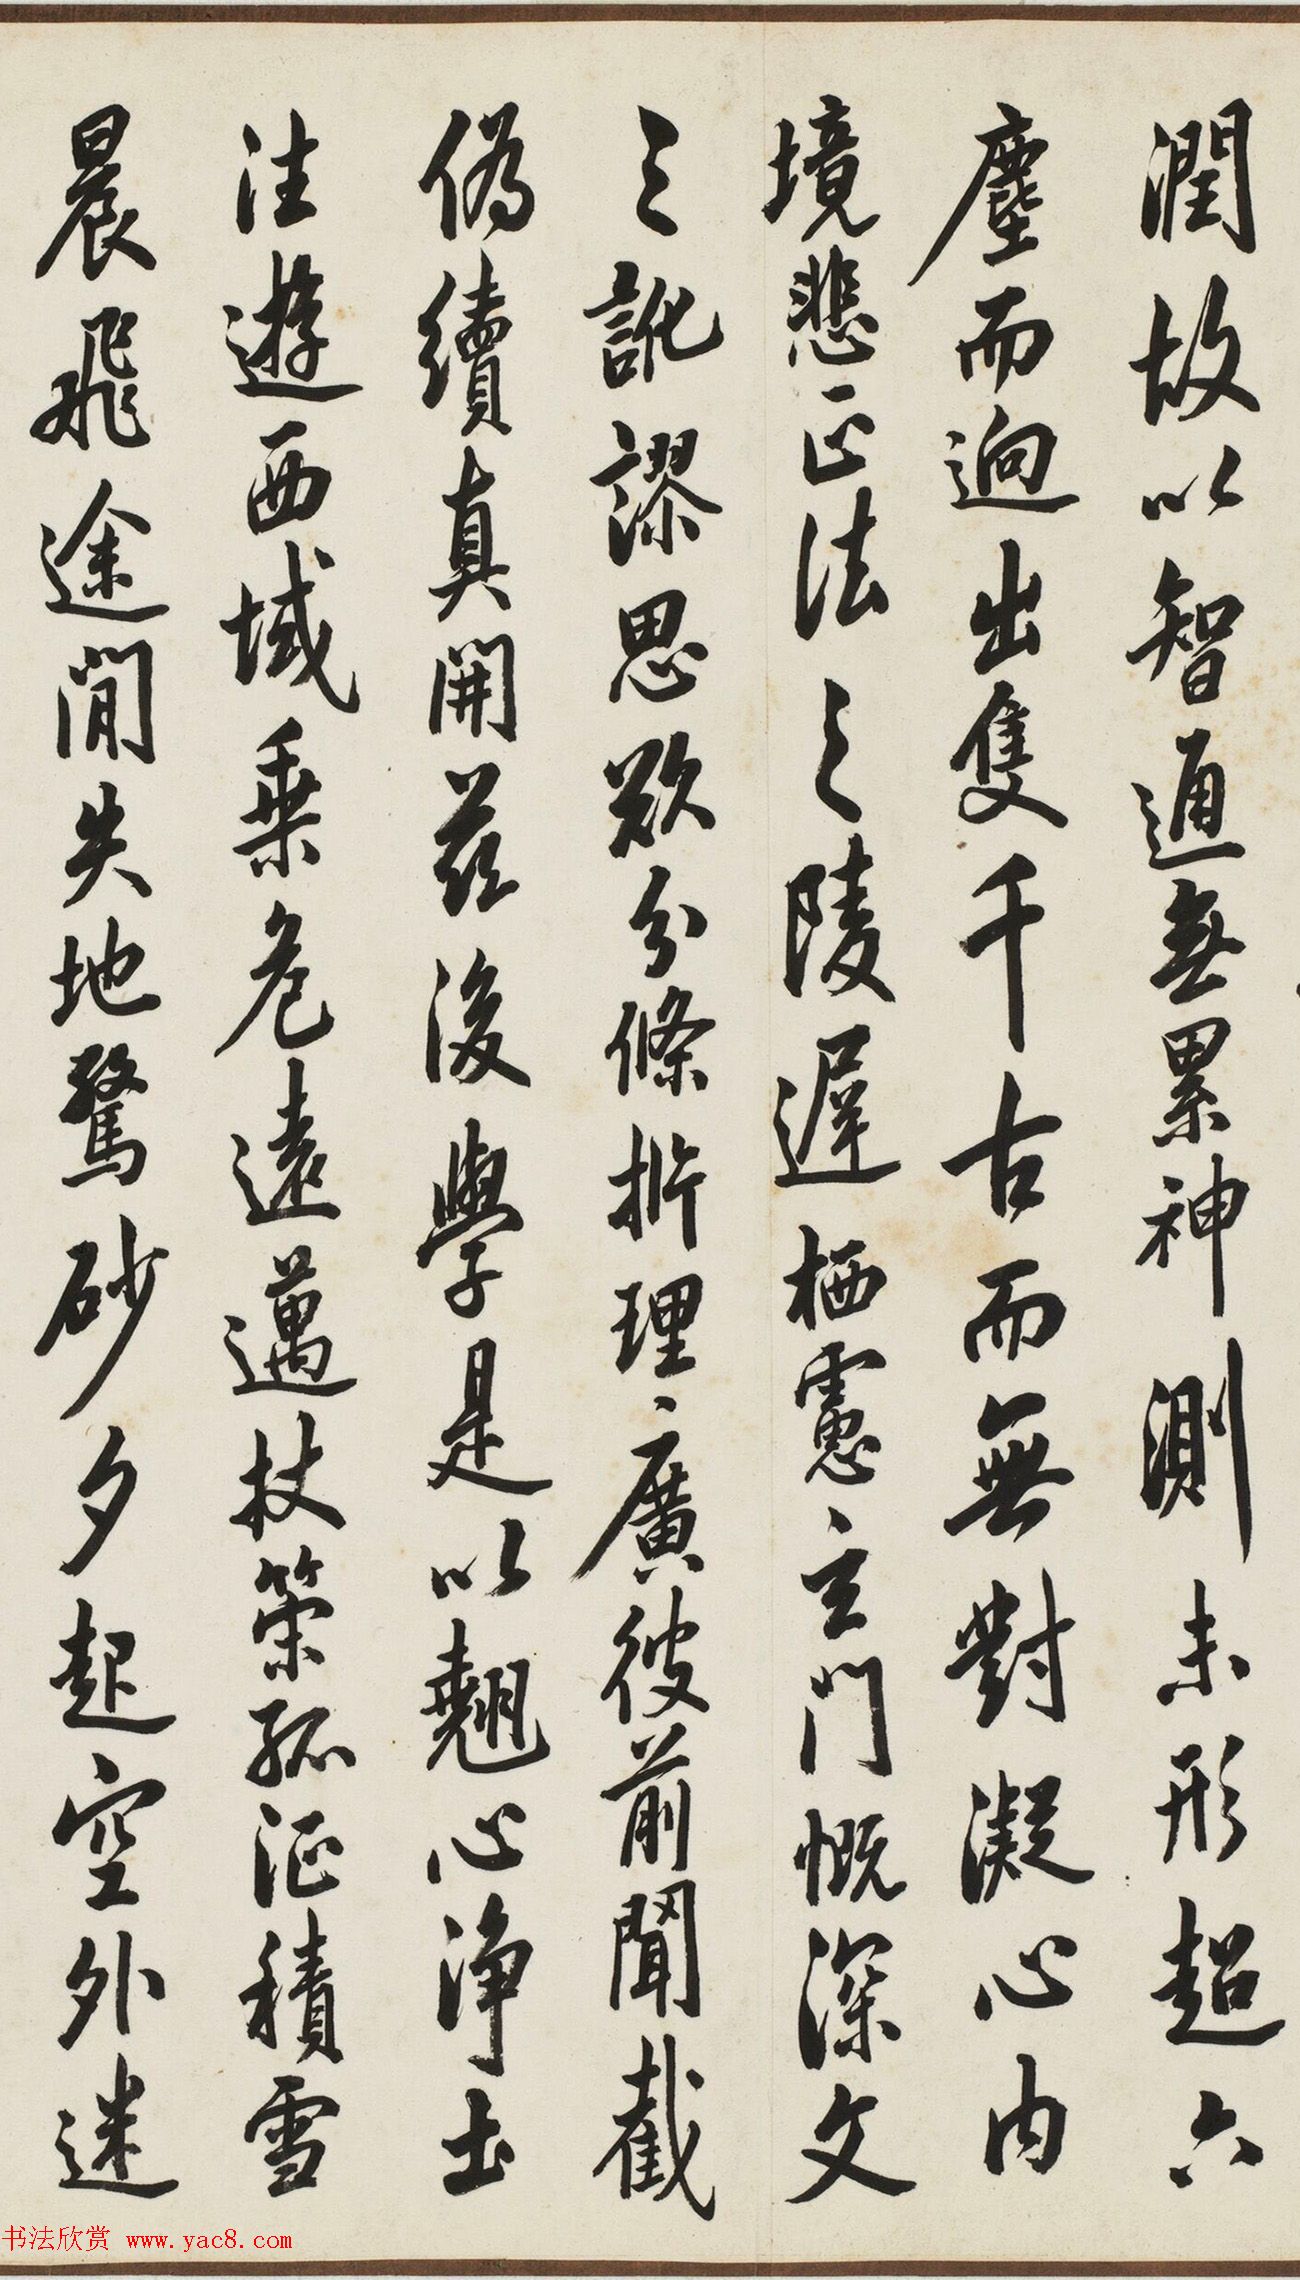 潤故以智通無累神測未形超六
塵而迥出隻千古而無對凝心内
境悲正法之陵遲栖慮玄門慨深文
之訛謬思欲分條析理廣彼前聞截
偽續真開茲後學是以翹心淨土
法遊西域乗危遠邁杖策孤征積雪
晨飛途閒失地驚砂夕起空外迷
书法欣赏 www.yac8.com